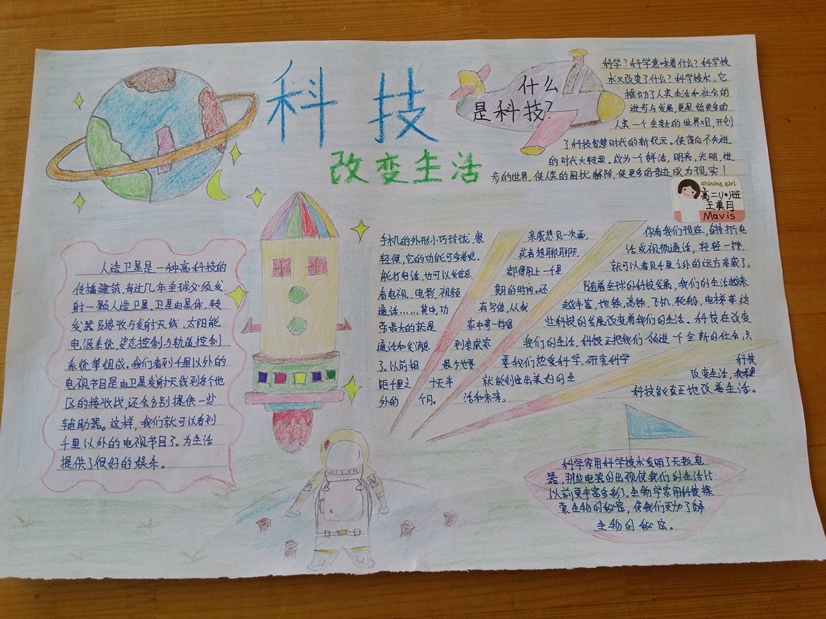 科技
改变生活
什么
是科技?
科学?科学意味着什么?科学技
术又改变了什么?科学技术,它
推动了人类生活和社会的
进步与发展,更是给更多的
人类一个全新的世界观,开创
了科技智慧时代的新纪元,使落后不先进
的时代大转型,改为一个鲜活,明亮,光明,进
步的世界,使人类的困扰解除,使更多的奇迹成为现实!
Shining girl
王美月
Mavis
人造卫星是一种高科技的
传播建筑,每过几年全球必须发
射一颗人造卫星。卫星由星体,转
发器及接收与发射天线,太阳能
电源系统,姿态控制与轨道控制
系统等组成。我们看到千里以外的
电视节目是由卫星发射天线到各个地
区的接收战,还会分别提供一些
辅助器。这样,我们就可以看到
千里以外的电视节目了。为生活
提供了很好的娱乐。
手机的外形小巧玲珑,很
轻便,它的功能可多着呢,
能打电话,也可以发信息
看电视,电影,视频
通话……其中,功
劳最大的就是
通话和发消息
了。以前相
距千里之
外的
亲戚想见一次面,
或者想聊聊天
都得用上一年半
期的时间。还
有写信,从我
家中寄一封信
到亲戚家
最少也要
十天半
个月。
你看我们现在,每打个电
话或视频通话,轻轻一按,
就可以看见千里之外的远方亲戚了。
随着全球的科技发展,我们的生活越来
越丰富,地铁,高铁,飞机,轮船,电梯等这
些科技的发展改变着我们的生活。科技在改变
我们的生活,科技正把我们领进一个全新的社会,只
要我们热爱科学,研究科学
就能创造出美好的生
活和未来。
科技
改变生活,
科技能真正地改善生活。
科学家用科学技术发明了无数电
器,那些电器的出现使我们的生活比
以前更丰富多彩。生物学家用科技探
索生物的秘密,使我们更加了解
生物的秘密。